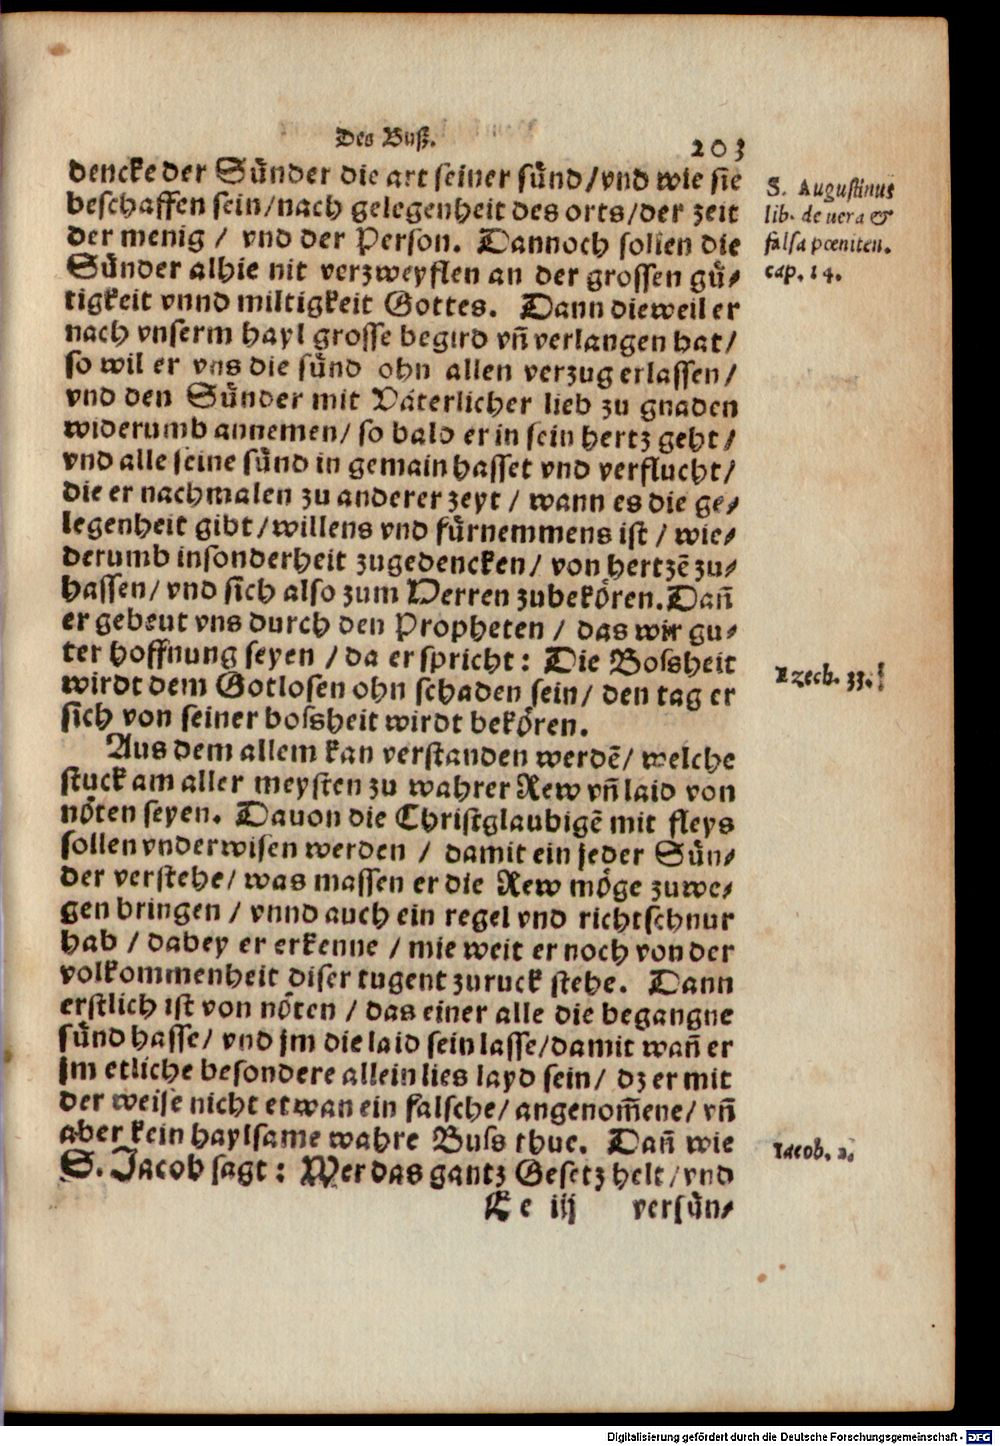 Des Buß.
203
dencke der Sünder die art seiner sünd/vnd wie sie
beschaffen sein/nach gelegenheit des orts/der zeit
der menig / vnd der Person. Dannoch sollen die
Sünder alhie nit verzweyflen an der grossen gü⸗
tigkeit vnnd miltigkeit Gottes. Dann dieweil er
nach vnserm hayl grosse begird vñ verlangen hat/
so wil er vns die sünd ohn allen verzug erlassen/
vnd den Sünder mit Väterlicher lieb zu gnaden
widerumb annemen/ so bald er in sein hertz geht/
vnd alle seine sünd in gemain hasset vnd verflucht/
die er nachmalen zu anderer zeyt / wann es die ge⸗
legenheit gibt/willens vnd fürnemmens ist / wie⸗
derumb insonderheit zugedencken/ von hertzẽ zu⸗
hassen/ vnd sich also zum Herren zubekören. Dañ
er gebeut vns durch den Propheten / das wir gu⸗
ter hoffnung seyen / da er spricht: Die Bossheit
wirdt dem Gotlosen ohn schaden sein/ den tag er
sich von seiner bossheit wirdt bekören.
Aus dem allem kan verstanden werdẽ/ welche
stuck am aller meysten zu wahrer Rew vñ laid von
nöten seyen. Dauon die Christglaubigẽ mit fleys
sollen vnderwisen werden / damit ein jeder Sün⸗
der verstehe/ was massen er die Rew möge zuwe⸗
gen bringen / vnnd auch ein regel vnd richtschnur
hab / dabey er erkenne / wie weit er noch von der
volkommenheit diser tugent zuruck stehe. Dann
erstlich ist von nöten / das einer alle die begangne
sünd hasse/ vnd jm die laid sein lasse/damit wañ er
jm etliche besondere allein lies layd sein/ dz er mit
der weise nicht etwan ein falsche/ angenom̃ene/ vñ
aber kein haylsame wahre Buss thue. Dañ wie
S. Jacob sagt: Wer das gantz Gesetz helt/vnd
Ee iij versün⸗
S. Augustinus
lib. de uera &
falsa pœniten.
cap. 14.
Ezech. 33.
Iacob. 2.
Digitalisierung gefördert durch die Deutsche Forschungsgemeinschaft - DFG